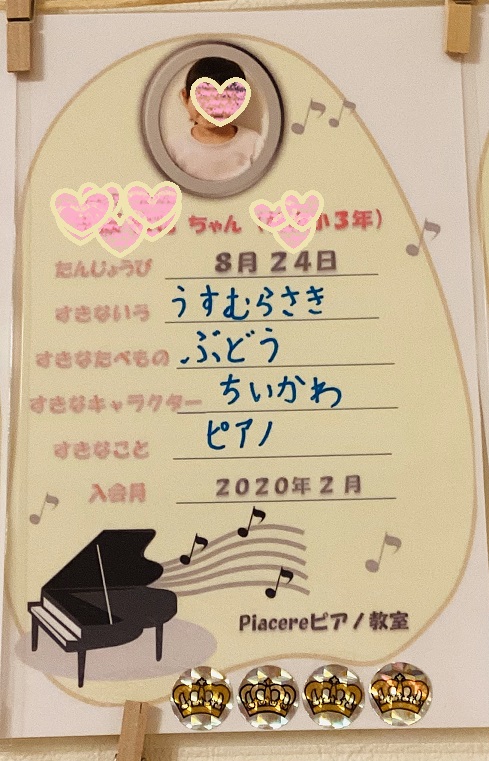 ちゃん（ 小３年）
たんじょうび ８月２４日
すきないろ うすむらさき
すきなたべもの ぶどう
すきなキャラクター ちいかわ
すきなこと ピアノ
入会月 ２０２０年２月
Piacereピアノ教室